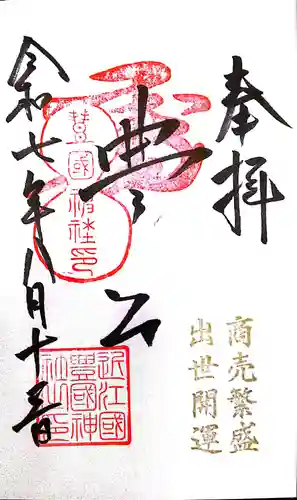 奉拝
商売繁盛
出世開運
豊公
近江國
豐國神
社之印
令和七年八月十日